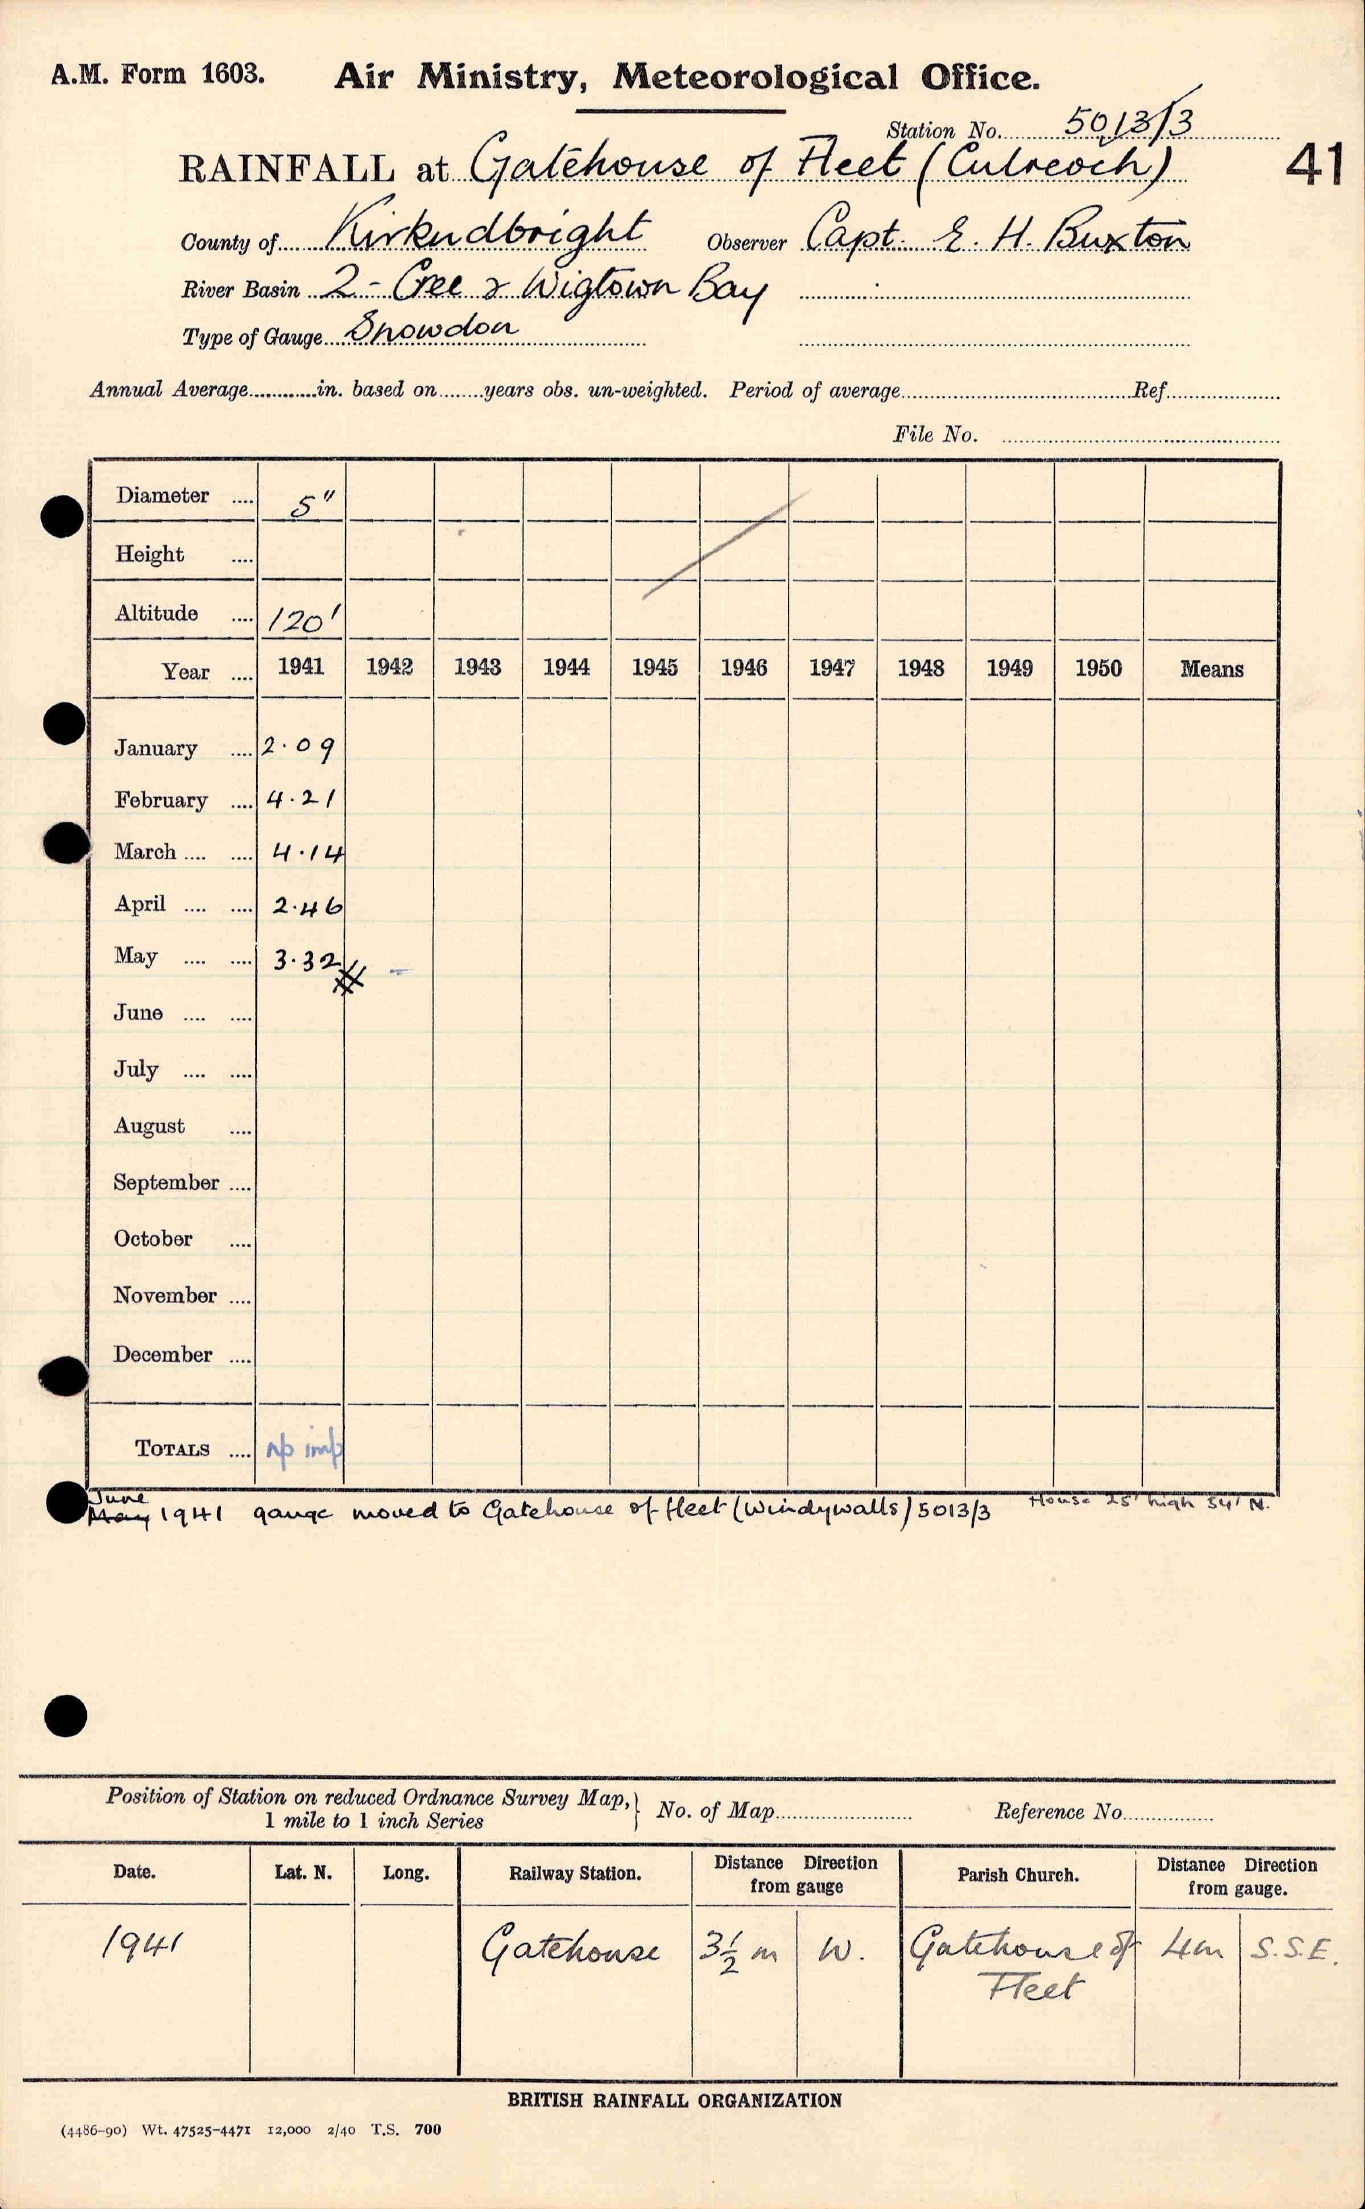 A.M. Form 1603. Air Ministry, Meteorological Office.
Station No. 5013/3
RAINFALL at Gatehouse of Fleet (Culreoch) 41
County of Kirkcudbright Observer Capt. E. H. Buxton
River Basin 2 - Cree & Wigtown Bay
Type of Gauge Snowdon
Annual Average in. based on years obs. un-weighted. Period of average Ref.
File No.
Diameter 5"
Height
Altitude 120'
Year 1941 1942 1943 1944 1945 1946 1947 1948 1949 1950 Means
January 2.09
February 4.21
March 4.14
April 2.46
May 3.32 -
June
July
August
September
October
November
December
TOTALS np imp
June
May 1941 gauge moved to Gatehouse of Fleet (Windywalls) 5013/3 House 25' high 54' N.
Position of Station on reduced Ordnance Survey Map,
1 mile to 1 inch Series } No. of Map Reference No.
Date. Lat. N. Long. Railway Station. Distance Direction from gauge Parish Church. Distance Direction from gauge.
1941 Gatehouse 3½ m W. Gatehouse of 4m S.S.E.
Fleet
BRITISH RAINFALL ORGANIZATION
(4486-90) Wt. 47525-4471 12,000 2/40 T.S. 700